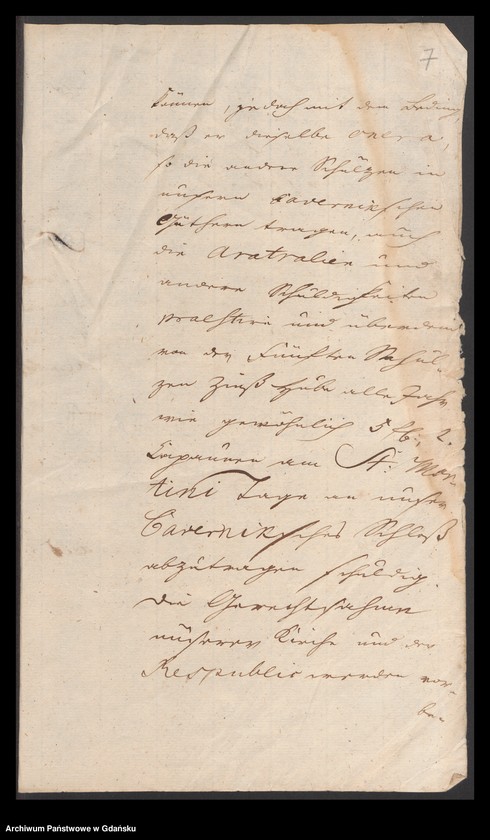 7
können, jedoch mit dem Beding,
daß er dieselbe onera,
so die andere Schültzen in
unsern Cavernikschen
Güthern tragen, auch
die Aratralien und
andere Schuldigkeiten
praestire und überdem
von der Fünften Schül-
zen Zinß Hube alle Jahr
wie gewöhnlich 5 fl: 2.
Capaunen am St: Mar-
tini Tage an unser
Caverniksches Schloß
abzutragen schuldig.
Die Gerechtsahme
unserer Kirche und der
Respublic werden vor-
be-
Archiwum Państwowe w Gdańsku